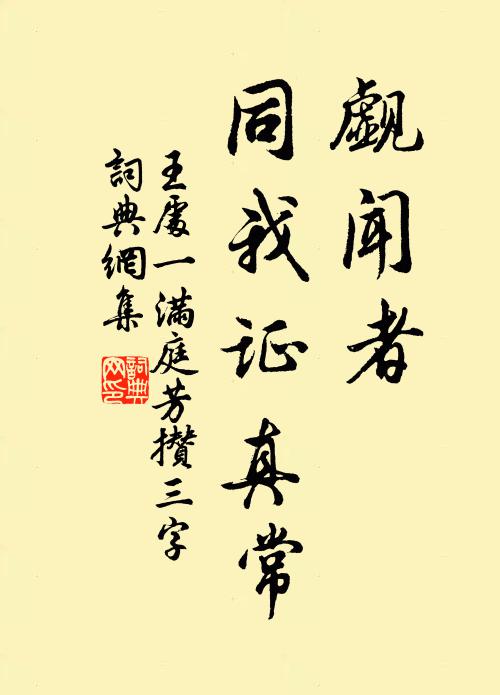 覷聞者
同我证真常
王處一滿庭芳攢三字
詞典網集
詞典網印